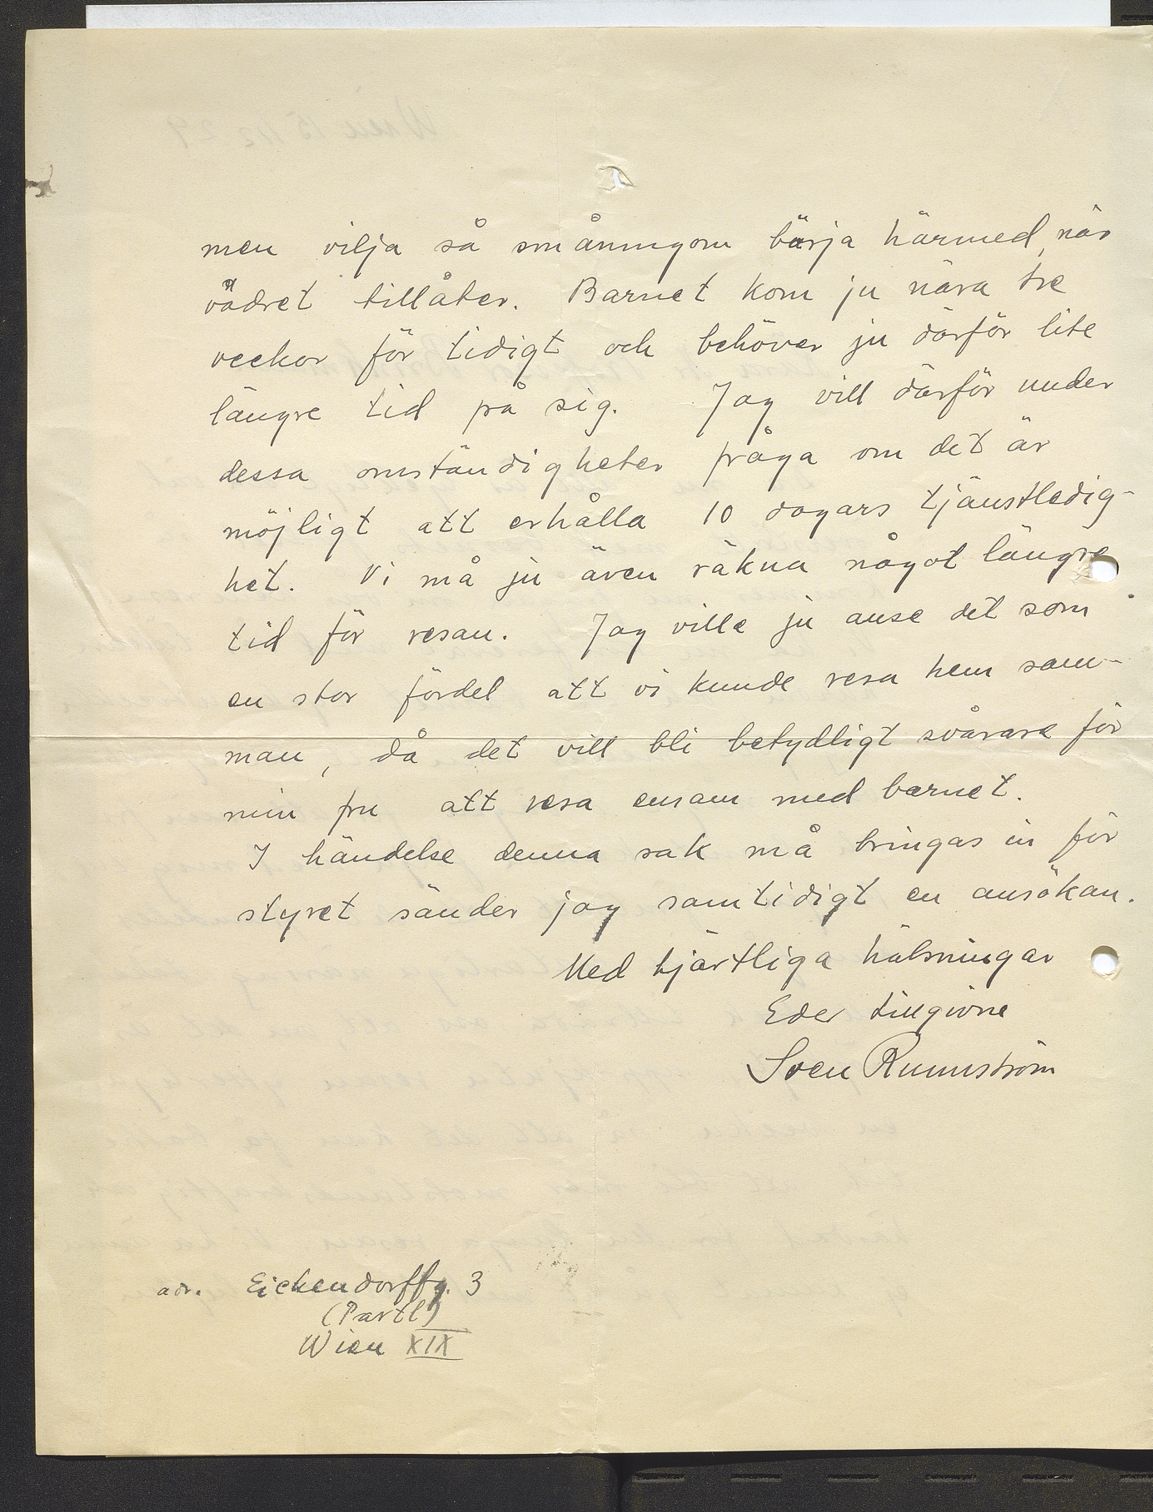 men vilja så småningom börja härmed, när
vädret tillåter. Barnet kom ju nära tre
veckor för tidigt och behöver ju därför lite
längre tid på sig. Jag vill därför under
dessa omständigheter fråga om det är
möjligt att erhålla 10 dagars tjänstledig-
het. Vi må ju även räkna något längre
tid för resan. Jag ville ju anse det som
en stor fördel att vi kunde resa hem sam-
man, då det vill bli betydligt svårare för
min fru att resa ensam med barnet.
I händelse denna sak må bringas in för
styret sänder jag samtidigt en ansökan.
Med hjärtliga hälsningar
Eder tillgivne
Sven Runnström
adr. Eichendorffg. 3
(Partl)
Wien XIX